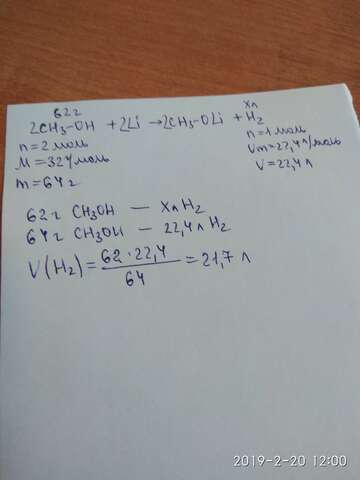 62г хл
2CH₃-OH + 2Li → 2CH₃-OLi + H₂
n=2моль n=1моль
M=32г/моль Vm=22,4л/моль
m=64г V=22,4л
62г CH₃OH — хл H₂
64г CH₃OH — 22,4л H₂
V(H₂)= 62·22,4 / 64 = 21,7 л
2019-2-20 12:00